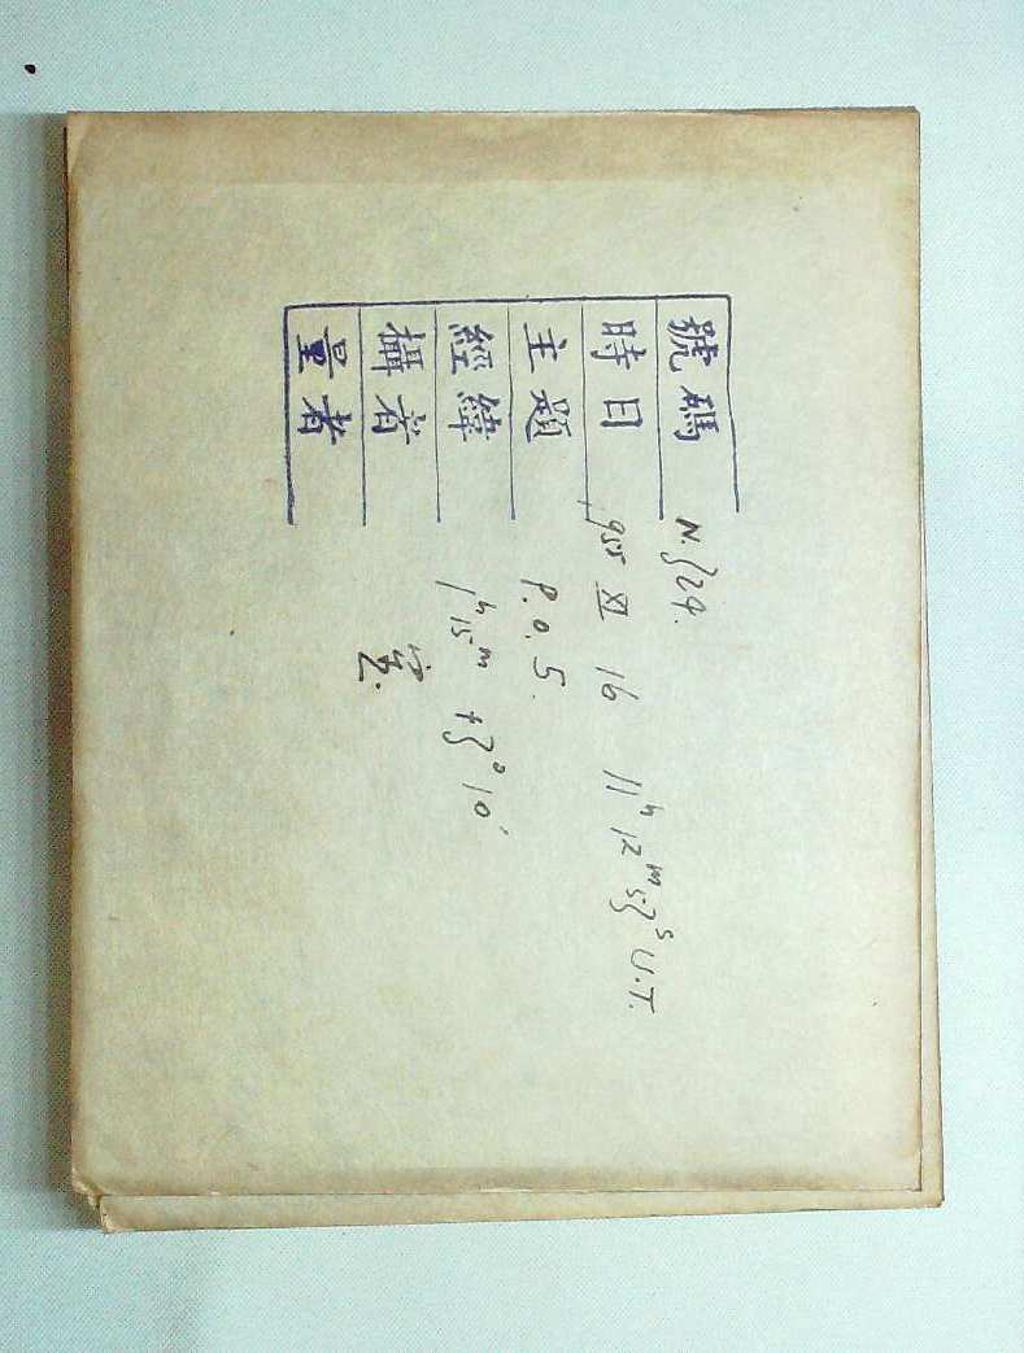 號碼 N. 524.
時日 1955 XI 16 11h 12m 55s U.T.
主題 P.O. 5.
經緯 1h 15m +5° 10′
攝者
量者